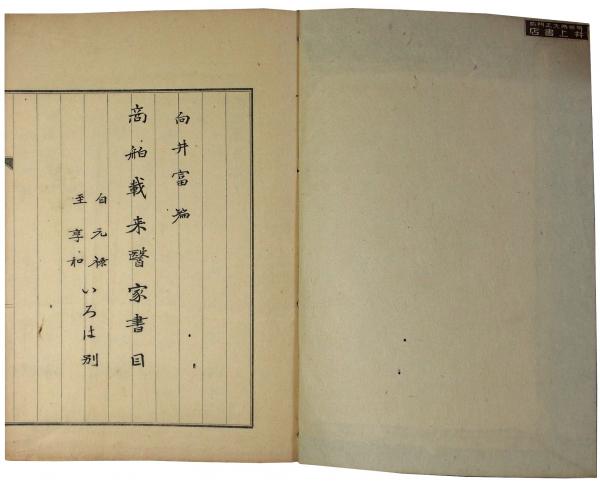 井上書店
向井富編
商舶載来醫家書目
自元禄
至享和
いろは別